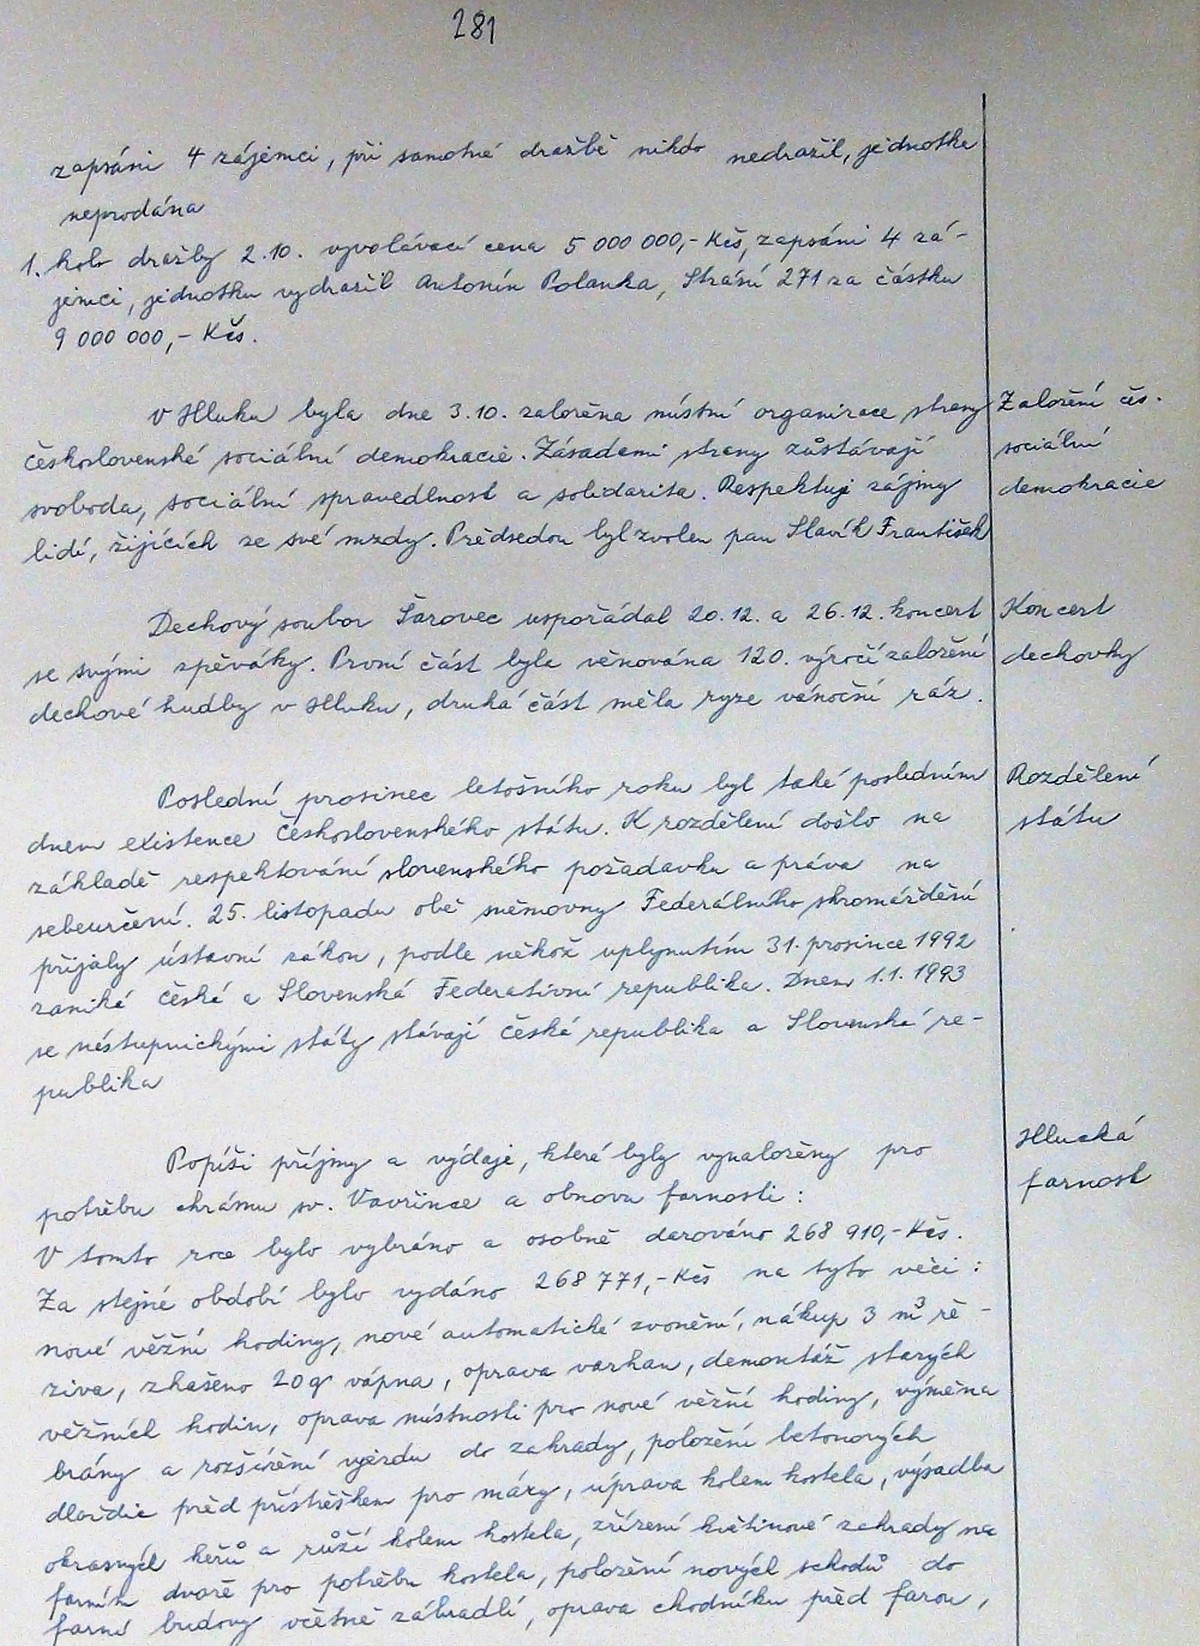 281
zapsáni 4 zájemci, při samotné dražbě nikdo nedražil, jednotka
neprodána
1. kolo dražby 2.10. vyvolávací cena 5 000 000,- Kčs, zapsáni 4 zá-
jemci, jednotku vydražil Antonín Polanka, Strání 271 za částku
9 000 000,- Kčs.
V Hluku byla dne 3.10. založena místní organizace strany
Československé sociální demokracie. Zásadami strany zůstávají
svoboda, sociální spravedlnost a solidarita. Respektuje zájmy
lidí, žijících ze své mzdy. Předsedou byl zvolen pan Slavík František
Založení čs.
sociální
demokracie
Dechový soubor Šarovec uspořádal 20.12. a 26.12. koncert
se svými zpěváky. První část byla věnována 120. výročí založení
dechové hudby v Hluku, druhá část měla ryze vánoční ráz.
Koncert
dechovky
Poslední prosinec letošního roku byl také posledním
dnem existence Československého státu. K rozdělení došlo na
základě respektování slovenského požadavku a práva na
sebeurčení. 25. listopadu obě sněmovny Federálního shromáždění
přijaly ústavní zákon, podle něhož uplynutím 31. prosince 1992
zaniká Česká a Slovenská Federativní republika. Dnem 1.1. 1993
se nástupnickými státy stávají Česká republika a Slovenská re-
publika
Rozdělení
státu
Popíši příjmy a výdaje, které byly vynaloženy pro
potřebu chrámu sv. Vavřince a obnovu farnosti:
V tomto roce bylo vybráno a osobně darováno 268 910,- Kčs.
Za stejné období bylo vydáno 268 771,- Kčs na tyto věci:
nové věžní hodiny, nové automatické zvonění, nákup 3 m³ ře-
ziva, zhašeno 20q vápna, oprava varhan, demontáž starých
věžních hodin, oprava místnosti pro nové věžní hodiny, výměna
brány a rozšíření vjezdu do zahrady, položení betonových
dlaždic před přístřeškem pro máry, úprava kolem kostela, výsadba
okrasných keřů a růží kolem kostela, zřízení květinové zahrady na
farním dvoře pro potřebu kostela, položení nových schodů do
farní budovy včetně zábradlí, oprava chodníku před farou,
Hlucká
farnost